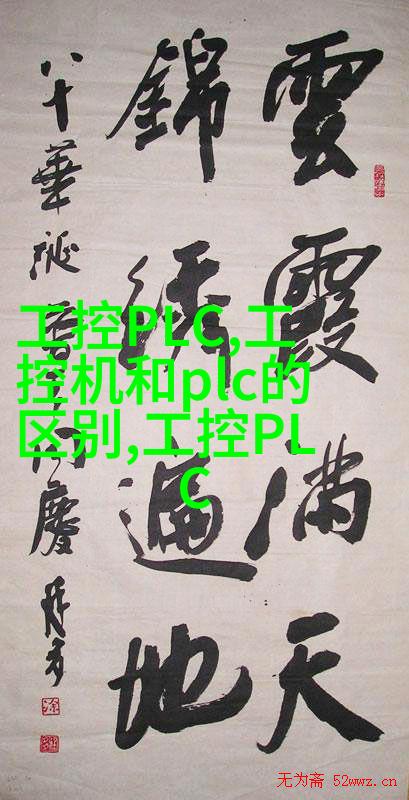 雲霞满天
錦綉遍地
八十華誕 同慶
工控PLC,工
控机和plc的
区别,工控PL
C
无为斋 52wwz.cn